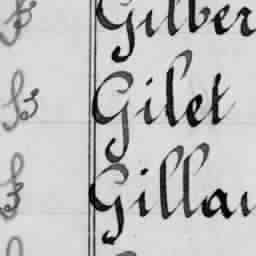 Gilber
Gilet
Gillau